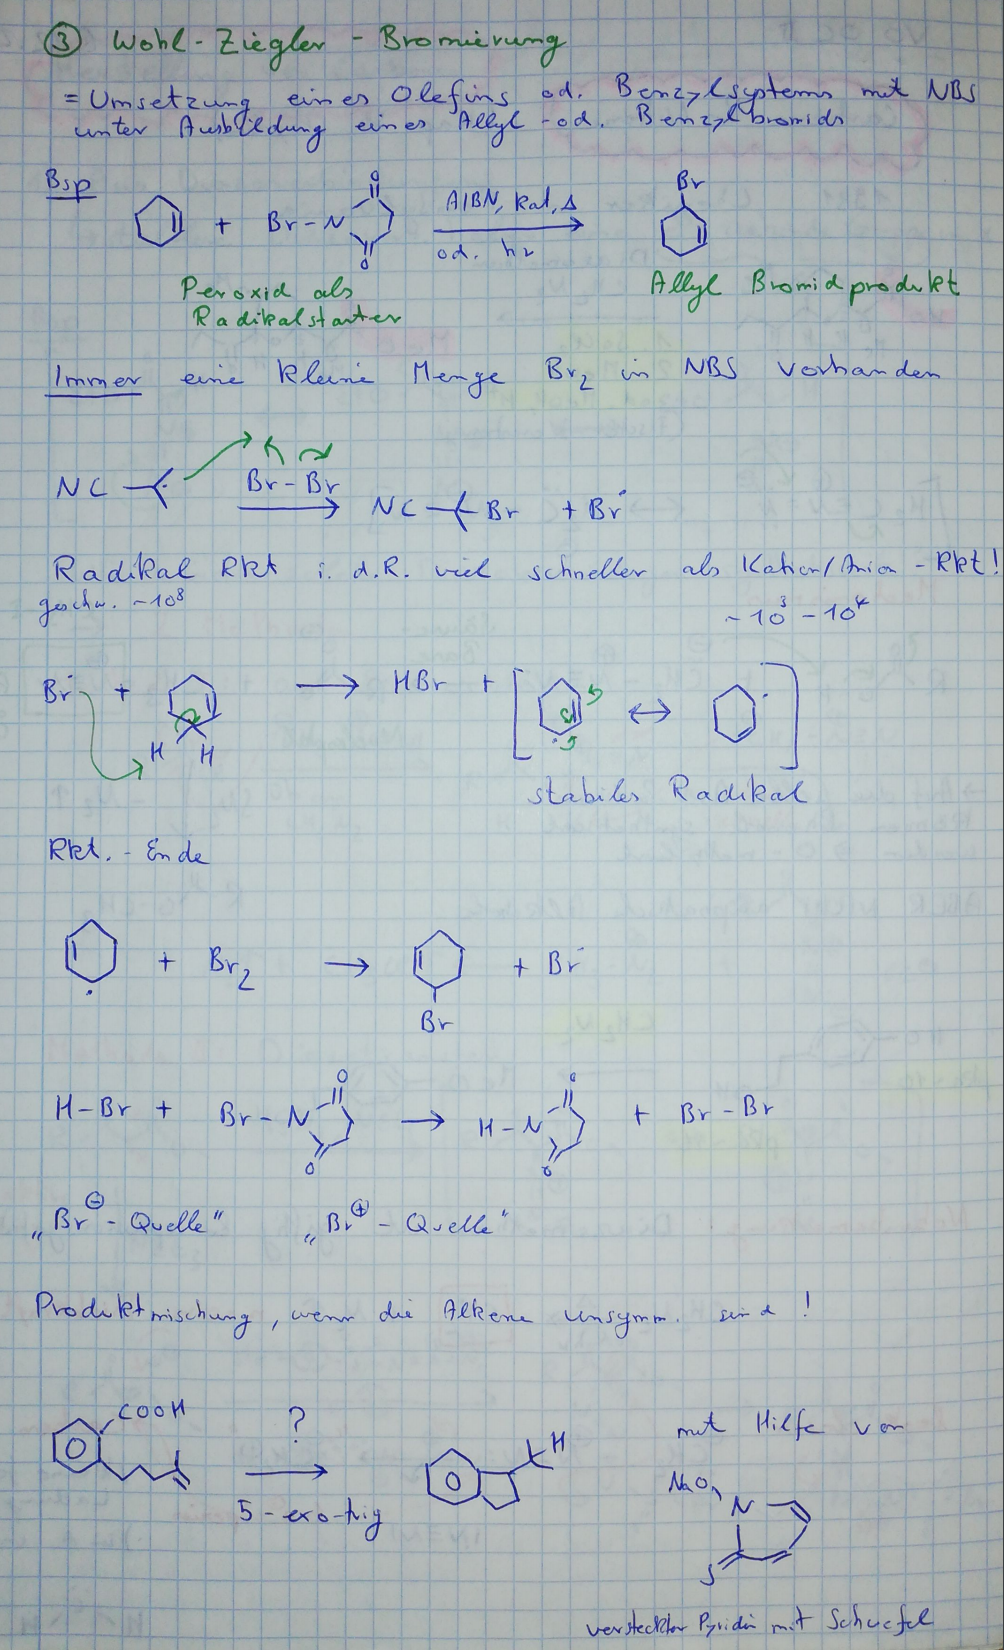 ③ Wohl-Ziegler-Bromierung
= Umsetzung eines Olefins od. Benzylsystems mit NBS
unter Ausbildung eines Allyl-od. Benzylbromids
Bsp
+ Br-N O O AIBN, kat, Δ Br
od. hν
Peroxid als Allyl Bromidprodukt
Radikalstarter
Immer eine kleine Menge Br2 in NBS vorhanden
NC Br-Br NC Br + Br·
Radikal Rkt i. d. R. viel schneller als Kation/Anion-Rkt!
geschw. ~10⁸ ~10³-10⁴
Br· + H H → HBr + [ ↔ ]
stabiles Radikal
Rkt.-Ende
+ Br2 → Br + Br·
H-Br + Br-N O O → H-N O O + Br-Br
„Br⊖-Quelle“ „Br⊕-Quelle“
Produktmischung, wenn die Alkene unsymm. sind!
COOH ? H mit Hilfe von
5-exo-trig NaO N S
versteckter Pyridin mit Schwefel